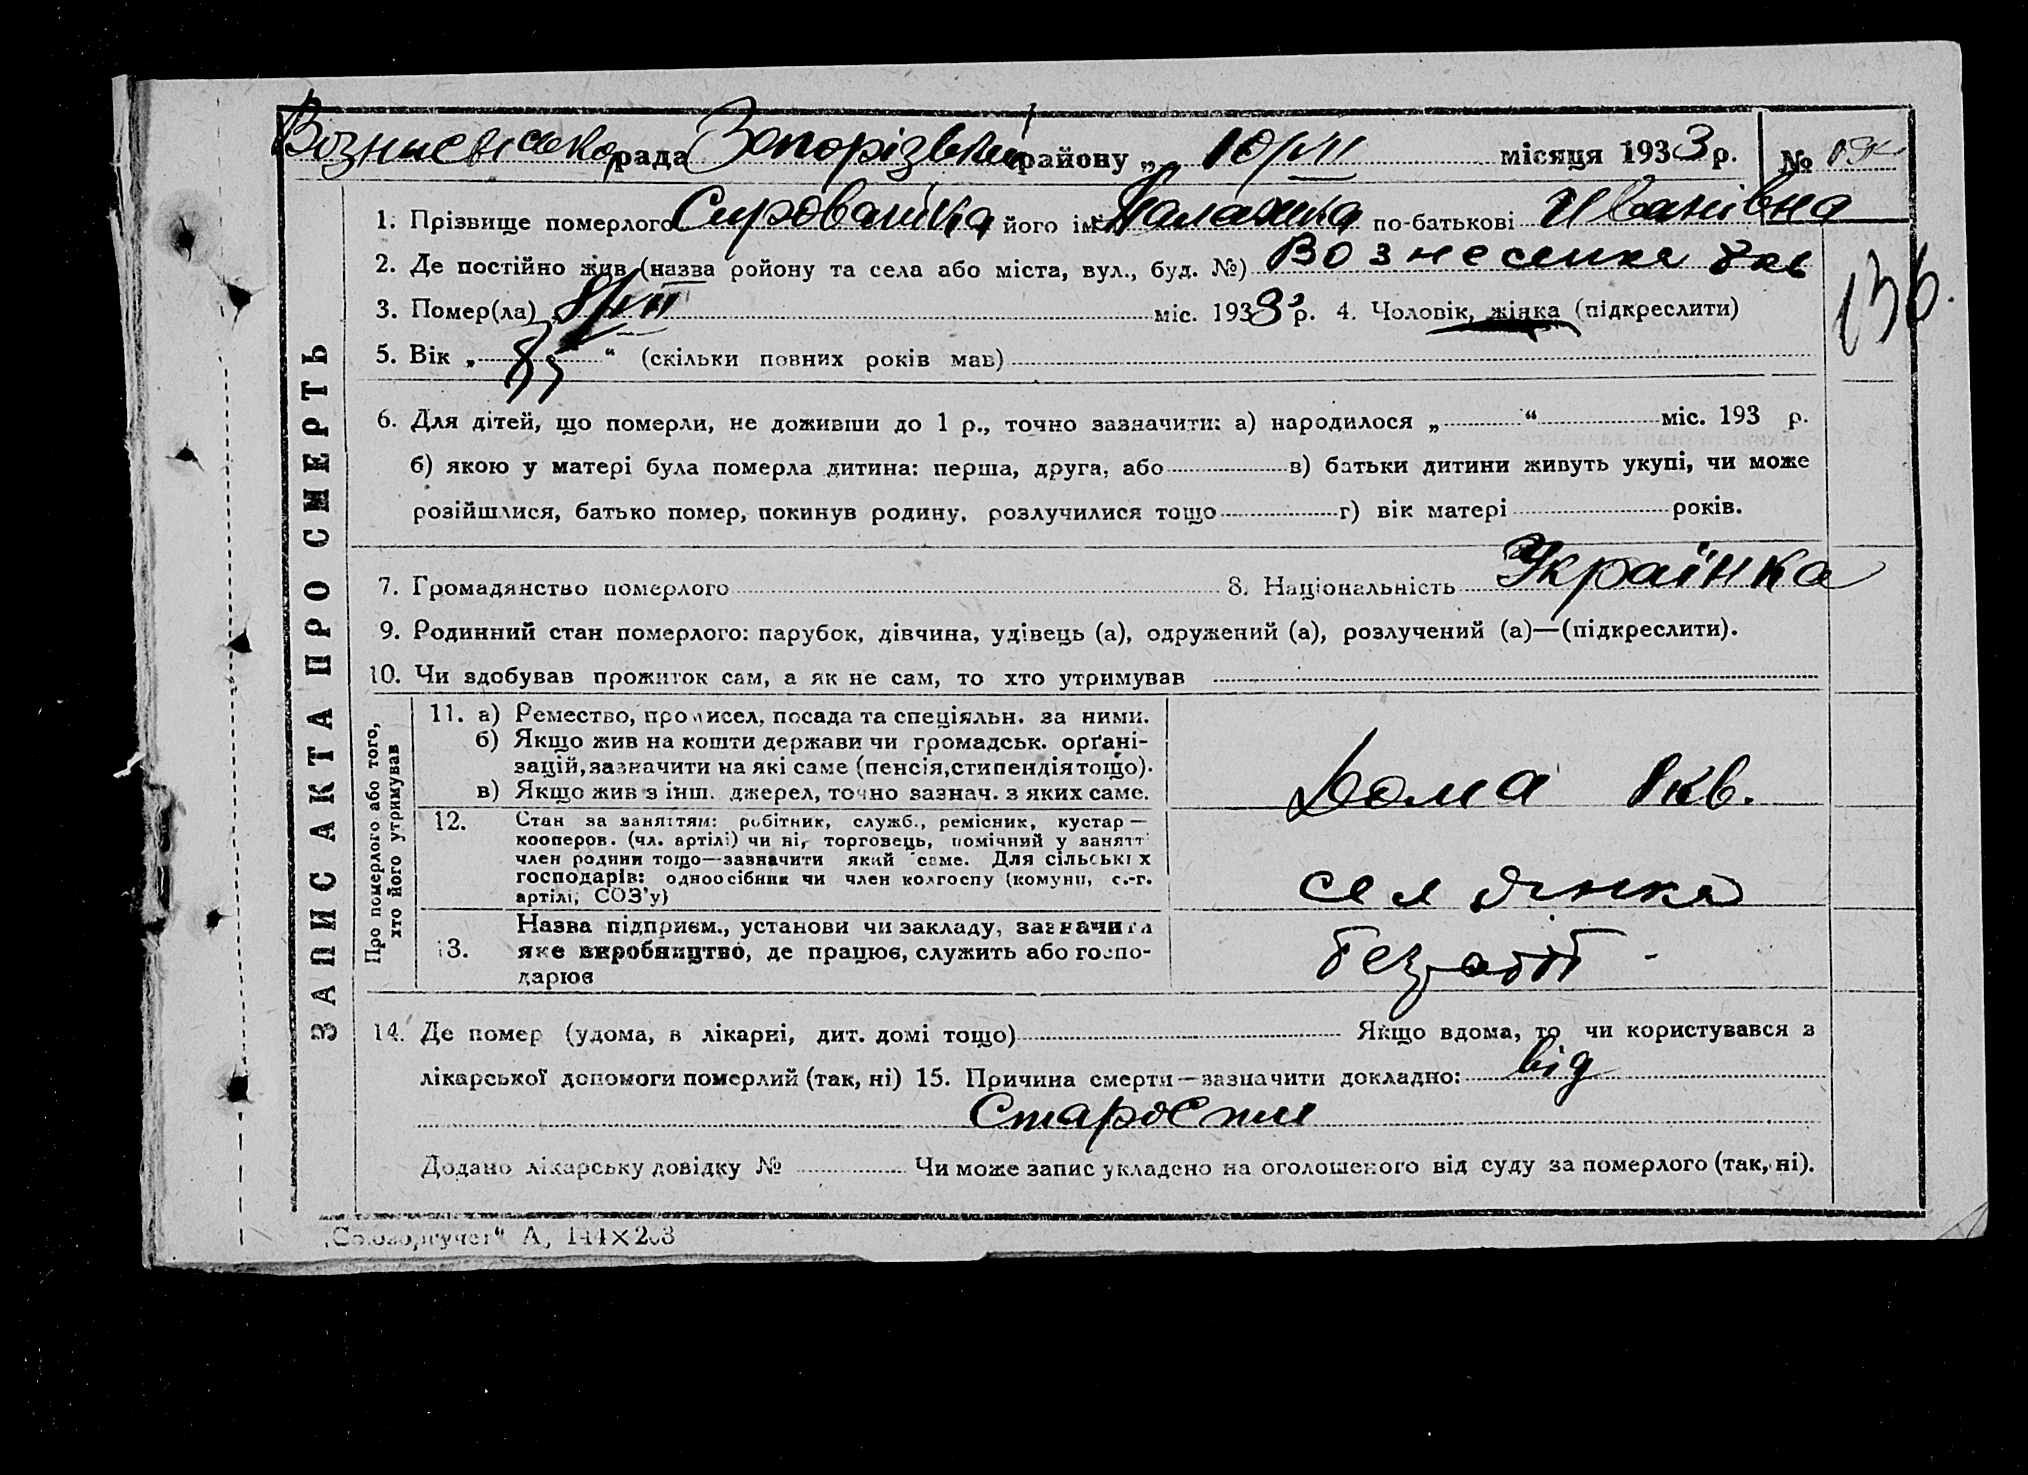 Вознесенська рада Запорізький району „ „ 10/VII місяця 1933 р. №
1. Прізвище померлого його ім'я Палажка по-батькові Иванівна
2. Де постійно жив (назва ройону та села або міста, вул., буд. №) Вознесенка
136.
3. Помер(ла) „ 8/VII міс. 1933 р. 4. Чоловік, жінка (підкреслити)
5. Вік „ “ (скільки повних років мав)
6. Для дітей, що померли, не доживши до 1 р., точно зазначити: а) народилося „ “ міс. 193 р.
б) якою у матері була померла дитина: перша, друга, або в) батьки дитини живуть укупі, чи може
розійшлися, батько помер, покинув родину, розлучилися тощо г) вік матері років.
7. Громадянство померлого 8. Національність Українка
9. Родинний стан померлого: парубок, дівчина, удівець (а), одружений (а), розлучений (а)—(підкреслити).
10. Чи здобував прожиток сам, а як не сам, то хто утримував
ЗАПИС АКТА ПРО СМЕРТЬ
Про померлого або того,
хто його утримував
11. а) Ремество, промисел, посада та спеціяльн. за ними.
б) Якщо жив на кошти держави чи громадськ. орґані-
зацій, зазначити на які саме (пенсія, стипендія тощо).
в) Якщо жив з інш. джерел, точно зазнач. з яких саме.
Дома 8 кв.
12. Стан за заняттям: робітник, служб., ремісник, кустар—
кооперов. (чл. артілі) чи ні, торговець, помічний у занятт
член родини тощо—зазначити який саме. Для сільських
господарів: одноосібник чи член колгоспу (комуни, с.-г.
артілі, СОЗ'у)
селянка
13. Назва підприєм., установи чи закладу, зазначити
яке виробництво, де працює, служить або госпо-
дарює
14. Де помер (удома, в лікарні, дит. домі тощо) Якщо вдома, то чи користувався з
лікарської допомоги померлий (так, ні) 15. Причина смерти—зазначити докладно: від
Старости
Додано лікарську довідку № Чи може запис укладено на оголошеного від суду за померлого (так, ні).
„Союзоргучет“ А, 144×203